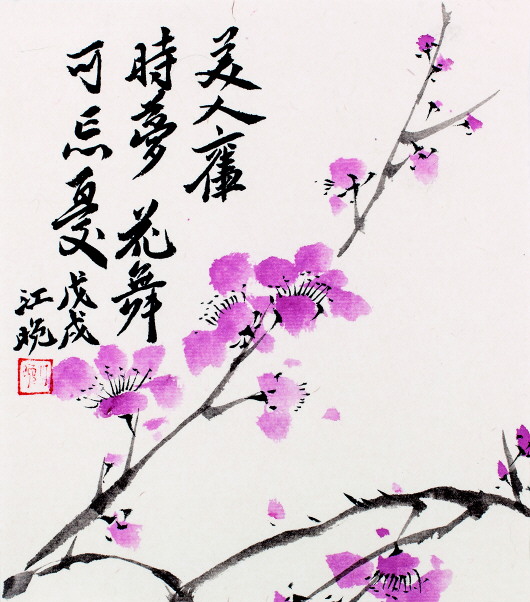 美人舊
時夢花舞
可忘憂
戊戌
江晚